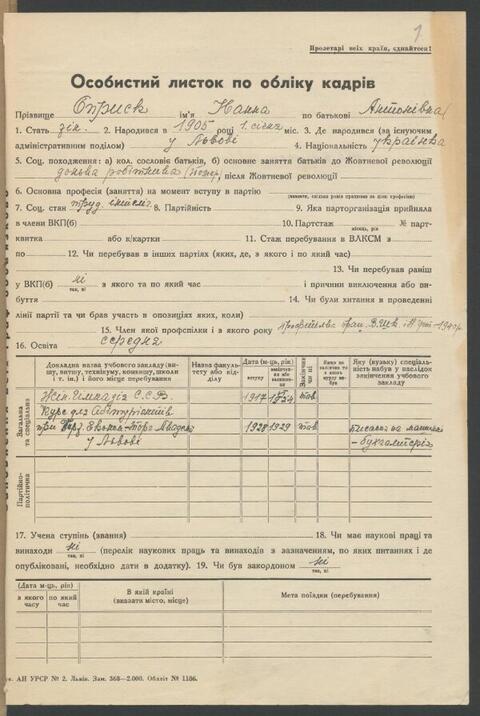 1.
Пролетарі всіх країн, єднайтеся!
Особистий листок по обліку кадрів
Прізвище Оприск ім'я Ханна по батькові Антонівна
1. Стать жін. 2. Народився в 1905 році 1. січня міс. 3. Де народився (за існуючим
адміністративним поділом) у Львові 4. Національність українка
5. Соц. походження: а) кол. сословіє батьків, б) основне заняття батьків до Жовтневої революції
донька робітника після Жовтневої революції
6. Основна професія (заняття) на момент вступу в партію
7. Соц. стан труд. інтеліг. 8. Партійність 9. Яка парторганізація прийняла
в члени ВКП(б) 10. Партстаж № парт-
місяць, рік
квитка або к/картки 11. Стаж перебування в ВЛКСМ з
по 12. Чи перебував в інших партіях (яких, де, з якого і по який час)
13. Чи перебував раніш
у ВКП(б) ні з якого та по який час і причини виключення або ви-
так, ні
буття 14. Чи були хитання в проведенні
лінії партії та чи брав участь в опозиціях яких, коли)
15. Член якої профспілки і з якого року
16. Освіта середня
Докладна назва учбового закладу (ви-
шу, втузу, технікуму, комвишу, школи
і т. ін.) і його місце перебування
Назва факуль-
тету або від-
ділу
Дата (м-ць, рік)
вступу
Закінчив
чи ні
Яку (вузьку) спеціаль-
ність набув у наслідок
закінчення учбового
закладу
Загальна
та спеціальна
Жін. Гімназія С.С.В. 1917 1924 так
Курс для Абітурієнтів
при 1928 1929 так писання на машині
у Львові - бухгалтерія
Партійно-
політична
17. Учена ступінь (звання) 18. Чи має наукові праці та
винаходи ні (перелік наукових праць та винаходів з зазначенням, по яких питаннях і де
так, ні
опубліковані, необхідно дати в додатку). 19. Чи був закордоном ні
так, ні
(Дата м-ць, рік)
з якого
часу
по який
час
В якій країні
(вказати місто, місце)
Мета поїздки (перебування)
АН УРСР № 2. Львів. Зам. 368—2.000. Обліт № 1186.